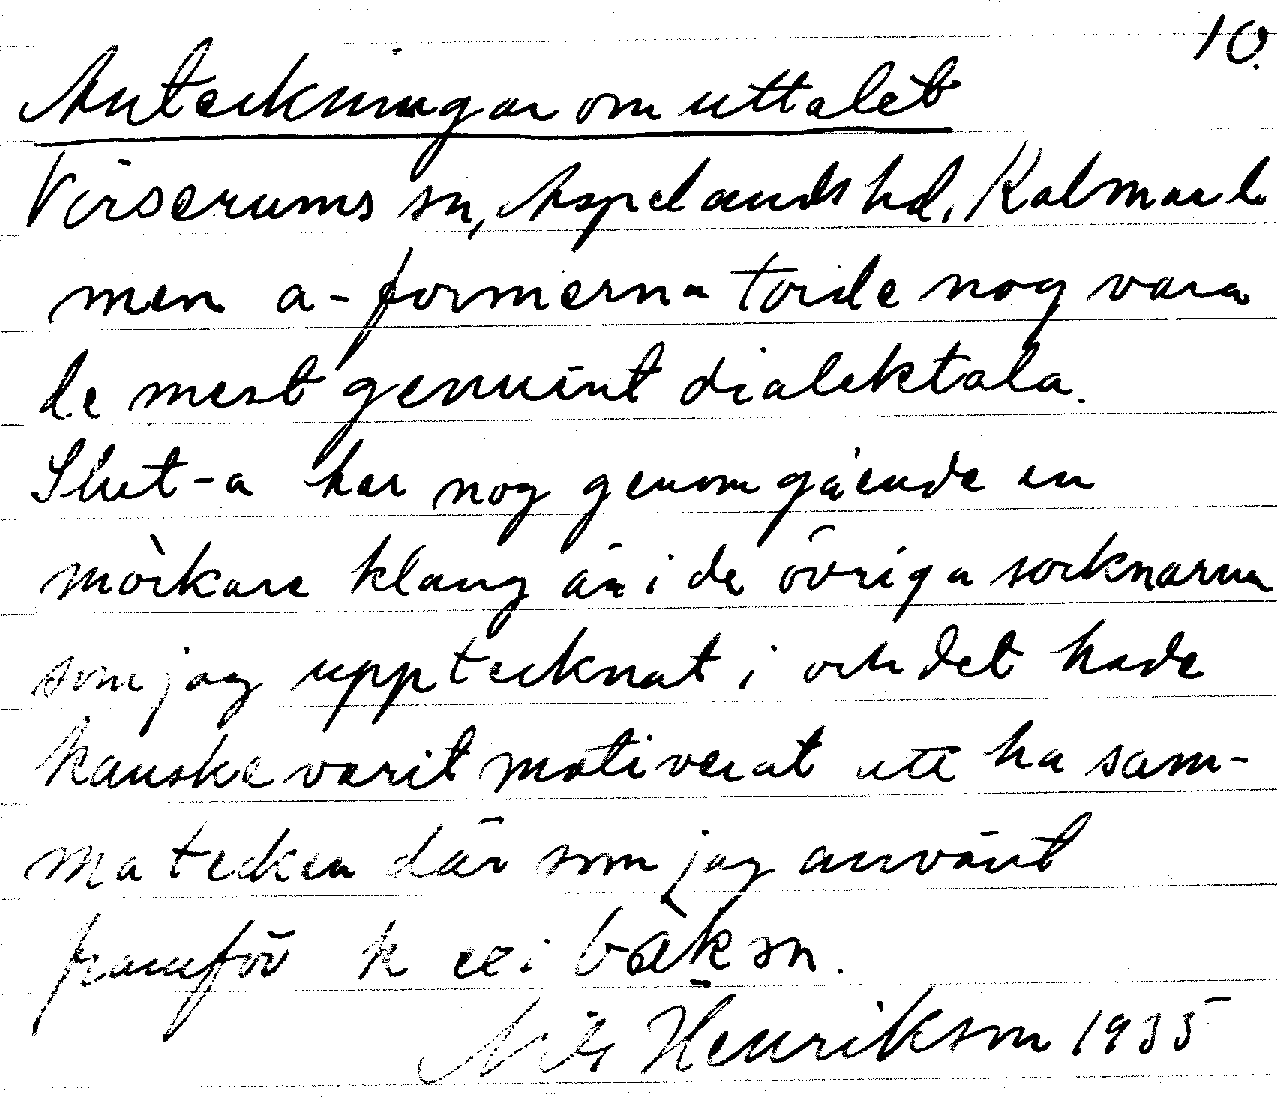 10.
Anteckningar om uttalet
Virserums sn, Aspelands hd, Kalmar l.
men a-formerna torde nog vara
de mest genuint dialektala.
Slut-a har nog genomgående en
mörkare klang än i de övriga socknarna
som jag upptecknat i och det hade
kanske varit motiverat att ha sam-
ma tecken där som jag använt
framför k ex i bàksn.
Nils Henrikson 1935